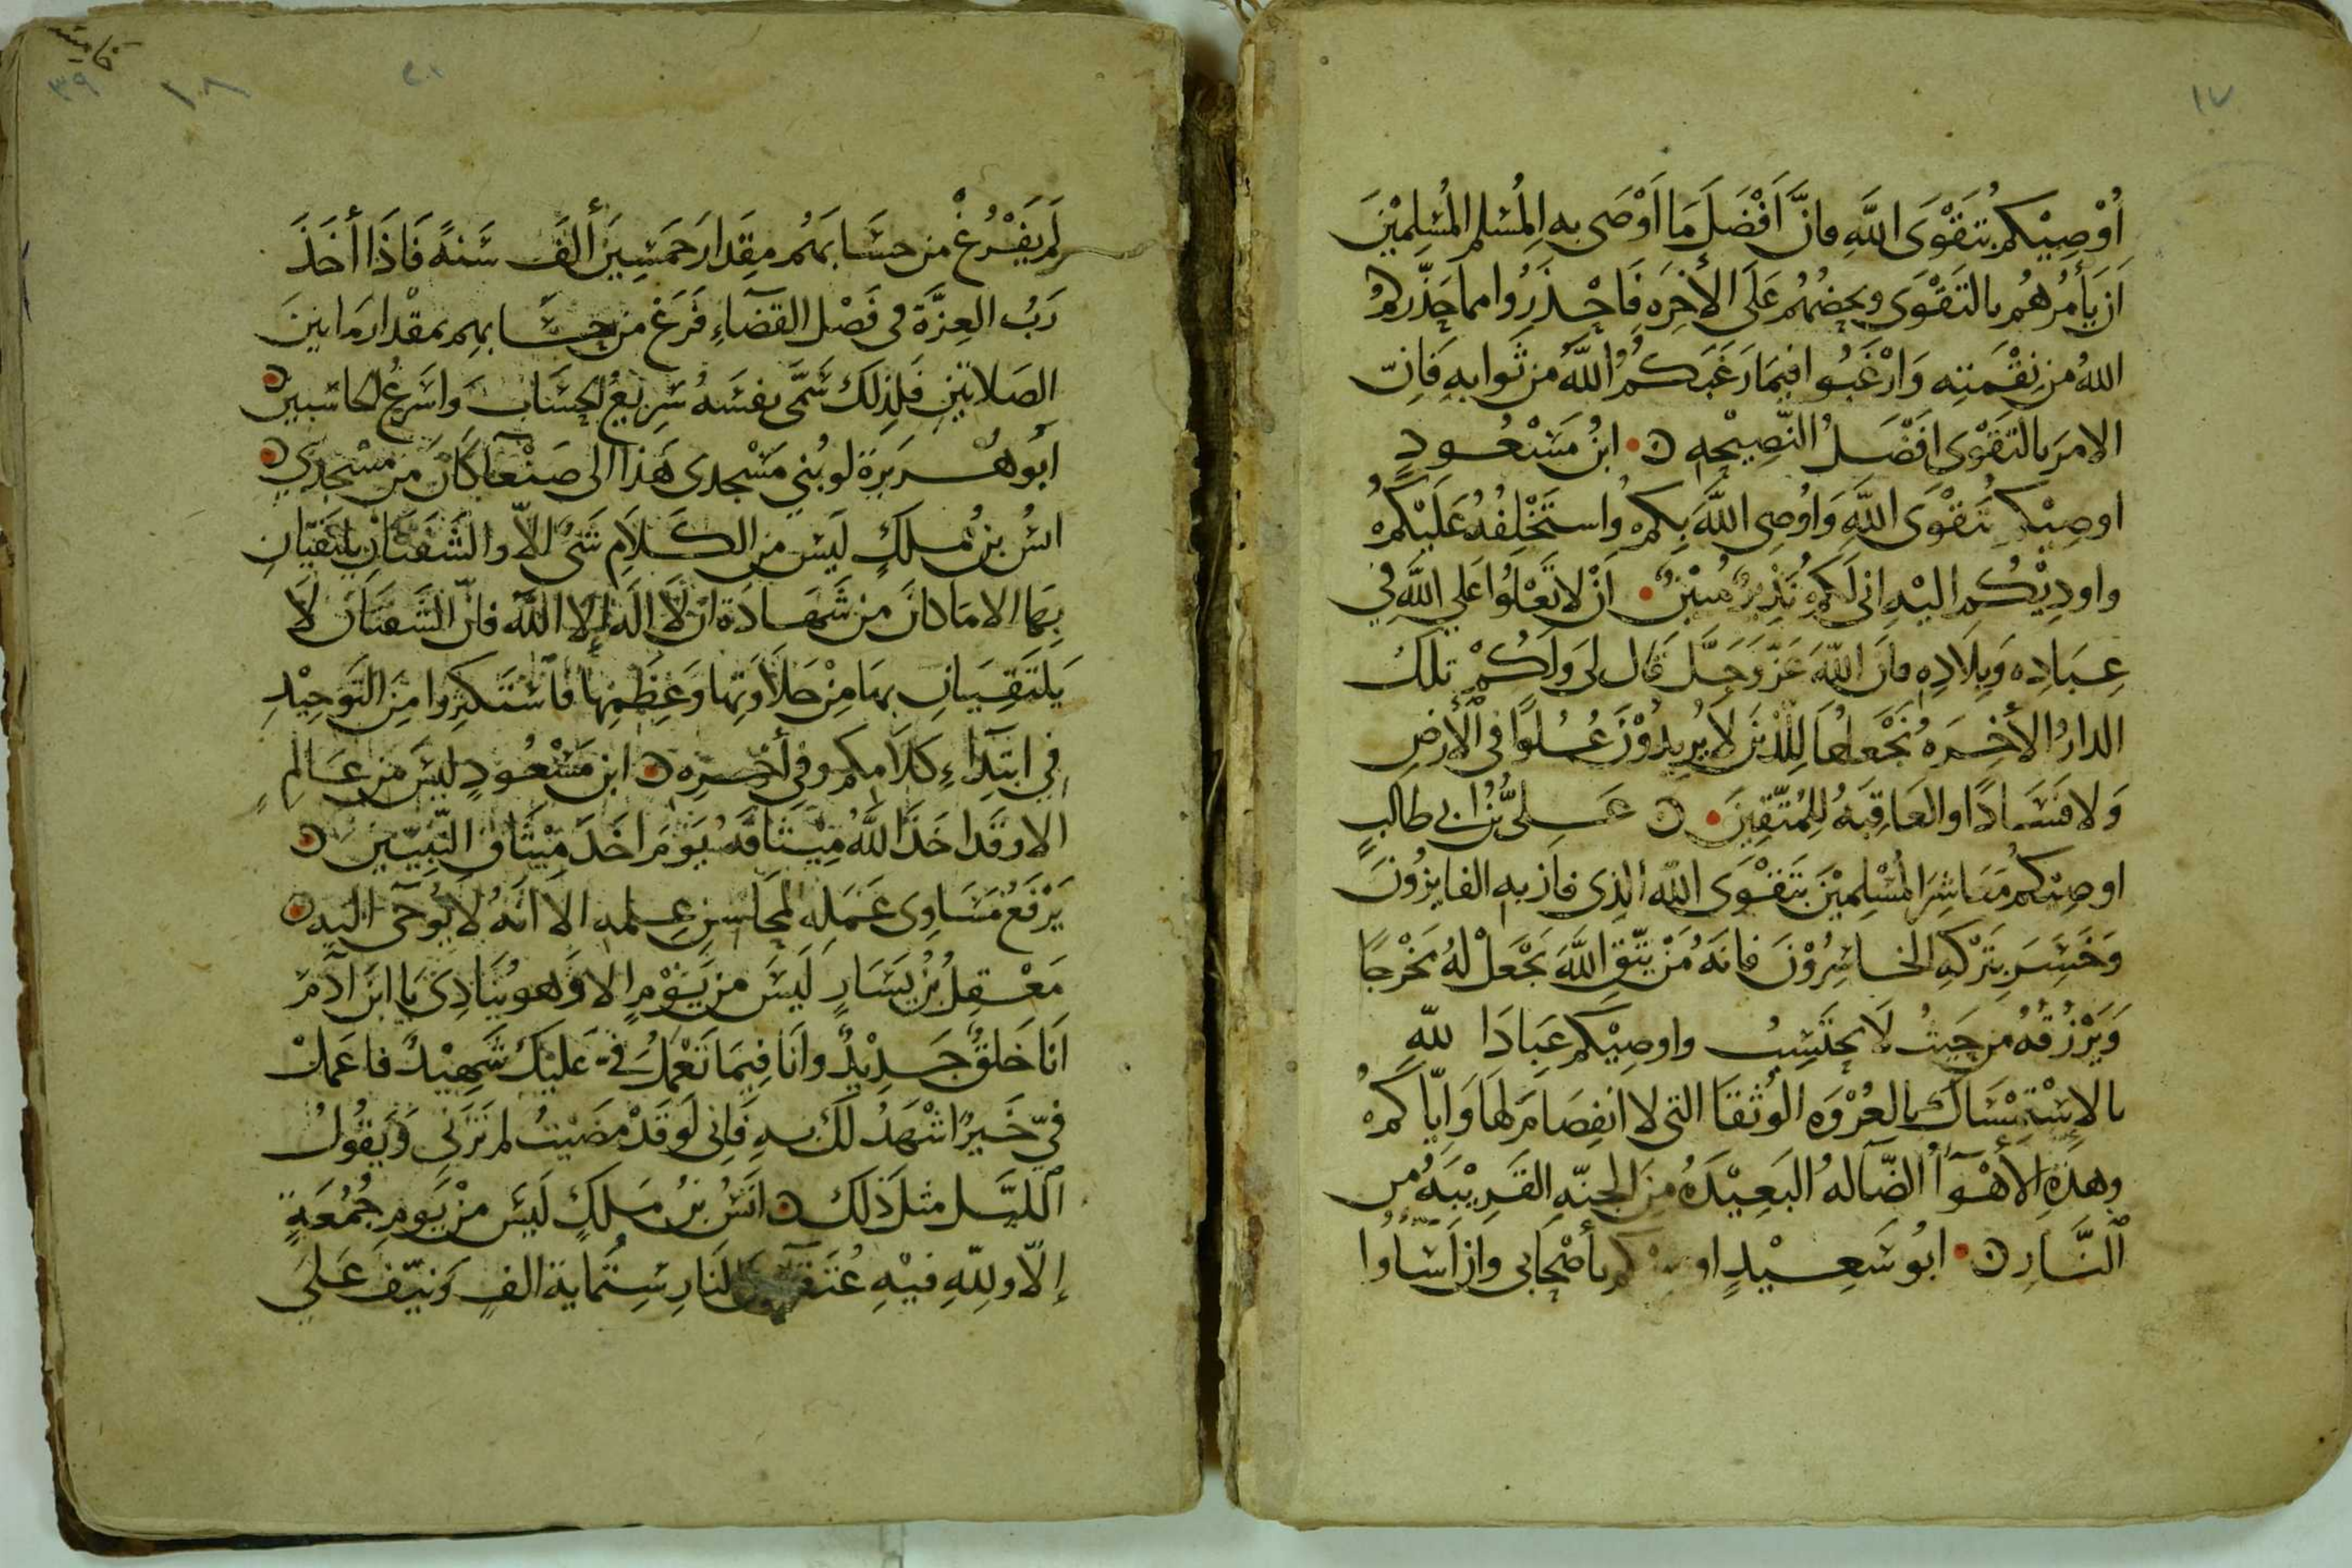 ١٧
اُوْصِيْكُم بتَقْوَى اللَّهِ فانَّ اَفْضَلَ مَا اَوْصَى به المُسْلم المُسْلِمِيْنَ
اَن يَأمُرهُم بالتَقْوَى ويحضهُم عَلَى الأخِرَه فَاحْذَرُوا مما حَذَّركمُ
اللهُ من نِقْمَتِه وَارْغَبُوا فيمَا رَغَبَكُمُ اللَّهُ من ثَوابهِ فَانّ
الامرَ بالتَقْوَى اَفْضَلُ النَّصِيْحه ابنُ مَسْعُودٍ
اوصِيْكم بتَقْوَى اللَّهِ وَاُوصِى اللَّهَ بِكمْ واستَخْلِفُهُ عَلَيْكمُ
واودِيْكُم اليْهِ انى لَكمُ نَذِيرٌ مُبيْنٌ اَنْ لا تَعْلُوا عَلى اللَّهِ فِي
عِبَادِه وَبِلَادِهِ فانَ اللَّهَ عَزّ وَجَلّ قال لى وَلَكُمْ تلكَ
الدارُ الأخِرَه نَجْعلهَا لِلّذِيْنَ لَا يُرِيدُوْنَ عُلوًا فى الأرضِ
وَلا فسَادًا والعَاقِبَهُ للِمُتّقِيَن عَلىُّ بْنُ ابى طالبٍ
اوصِيْكم مَعَاشِرَ المُسْلِميْنَ بتَقْوَى اللّه الذِى فازَ بهِ الفايزُونَ
وَخَسِرَ بتَرْكهِ الخاسِرُوْنَ فانهُ مَنْ يتّقِ اللَّهَ يَجْعَلْ لهُ مَخْرجًا
وَيَرْزُقهُ من حَيثُ لَا يحتَسِبُ واوصِيْكم عِبَادَا للّهِ
بالإسْتِمْسَاك بالعُرْوَه الوُثقَا التى لا انفِصَامَ لهَا وَاِيّاكمُ
وهذه الأهْوآ الضّآلهُ البَعِيْدَهُ منَ الجنّهِ القَرِيْبَهُ من
النَّارِ ابُو سَعِيْدٍ باَصْحَابى وان اَسَاوُا
٣٩
١٨
لَم يَفْرُغْ من حسَابهَمُ مقِدارَ خمَسِيَن ألفَ سَنهً فَاذَا أخَذَ
رَبُ العِزّة فى فَصْل القَضآءِ فَرَغَ من حِسَابهِم بمقْدار مَا بينَ
الصَلاتَينِ فَلِذلِكَ سَمَّى نفسَهُ سَرِيعُ الحِسَاب وَاسَرعُ الحاسبيْن
اَبُوهُرَيرَة لو بُني مَسْجدى هَذا الى صَنْعا كاَنَ مِن مسْجدِي
انسُ بنُ ملَكٍ لَيسَ من الكَلَامِ شَىٌ الاّ والشَفتَان يلتَقيَانِ
بهَا الا مَا كانَ من شهَادَة ان لَا الَه اِلا اللَّه فانّ الشَفتَان لَا
يَلتَقِيَانِ بهَا مِنْ حَلَاوَتها وَعِظَمِهَا فاَسْتَكثِروا مِنَ التَوحِيْدِ
فِي ابتِدَاء كلَامِكم وفى أخرِه ابن مَسْعُودٍ ليْسَ من عَالمٍ
الا وَقَد اخَذَ اللَّهُ مِيْثاقَه يَومَ اخَذَ مِيْثَاق النَّبِيّين
يَرْفَعُ مَسَاوِى عَمَلهِ لمحَاسِنِ عِلمه الا انَهُ لَا يُوحَى اليه
مَعْقِلُ بْنُ يَسَارٍ لَيسَ من يَوْمٍ الا وَهو يُنَادِى يا ابنَ آدَمَ
اَنا خَلقٌ جَدِيْدٌ وانَا فيمَا تَعْملُ فىَّ عَليْك شَهِيْدٌ فاعَملْ
فىّ خَيرًا شْهَدُ لكَ بهِ فَانى لَو قَدْ مَضَيتُ لم تَرَنى وَيَقُولُ
الليَل مثلَ ذلكَ اَنسُ بنُ مَلكٍ لَيسَ مِنْ يَومِ جُمُعَةٍ
إلّا وللهِ فيْهِ عُتَقَآ النَارِ سِتُماية الفِ وَنيّف عَلى